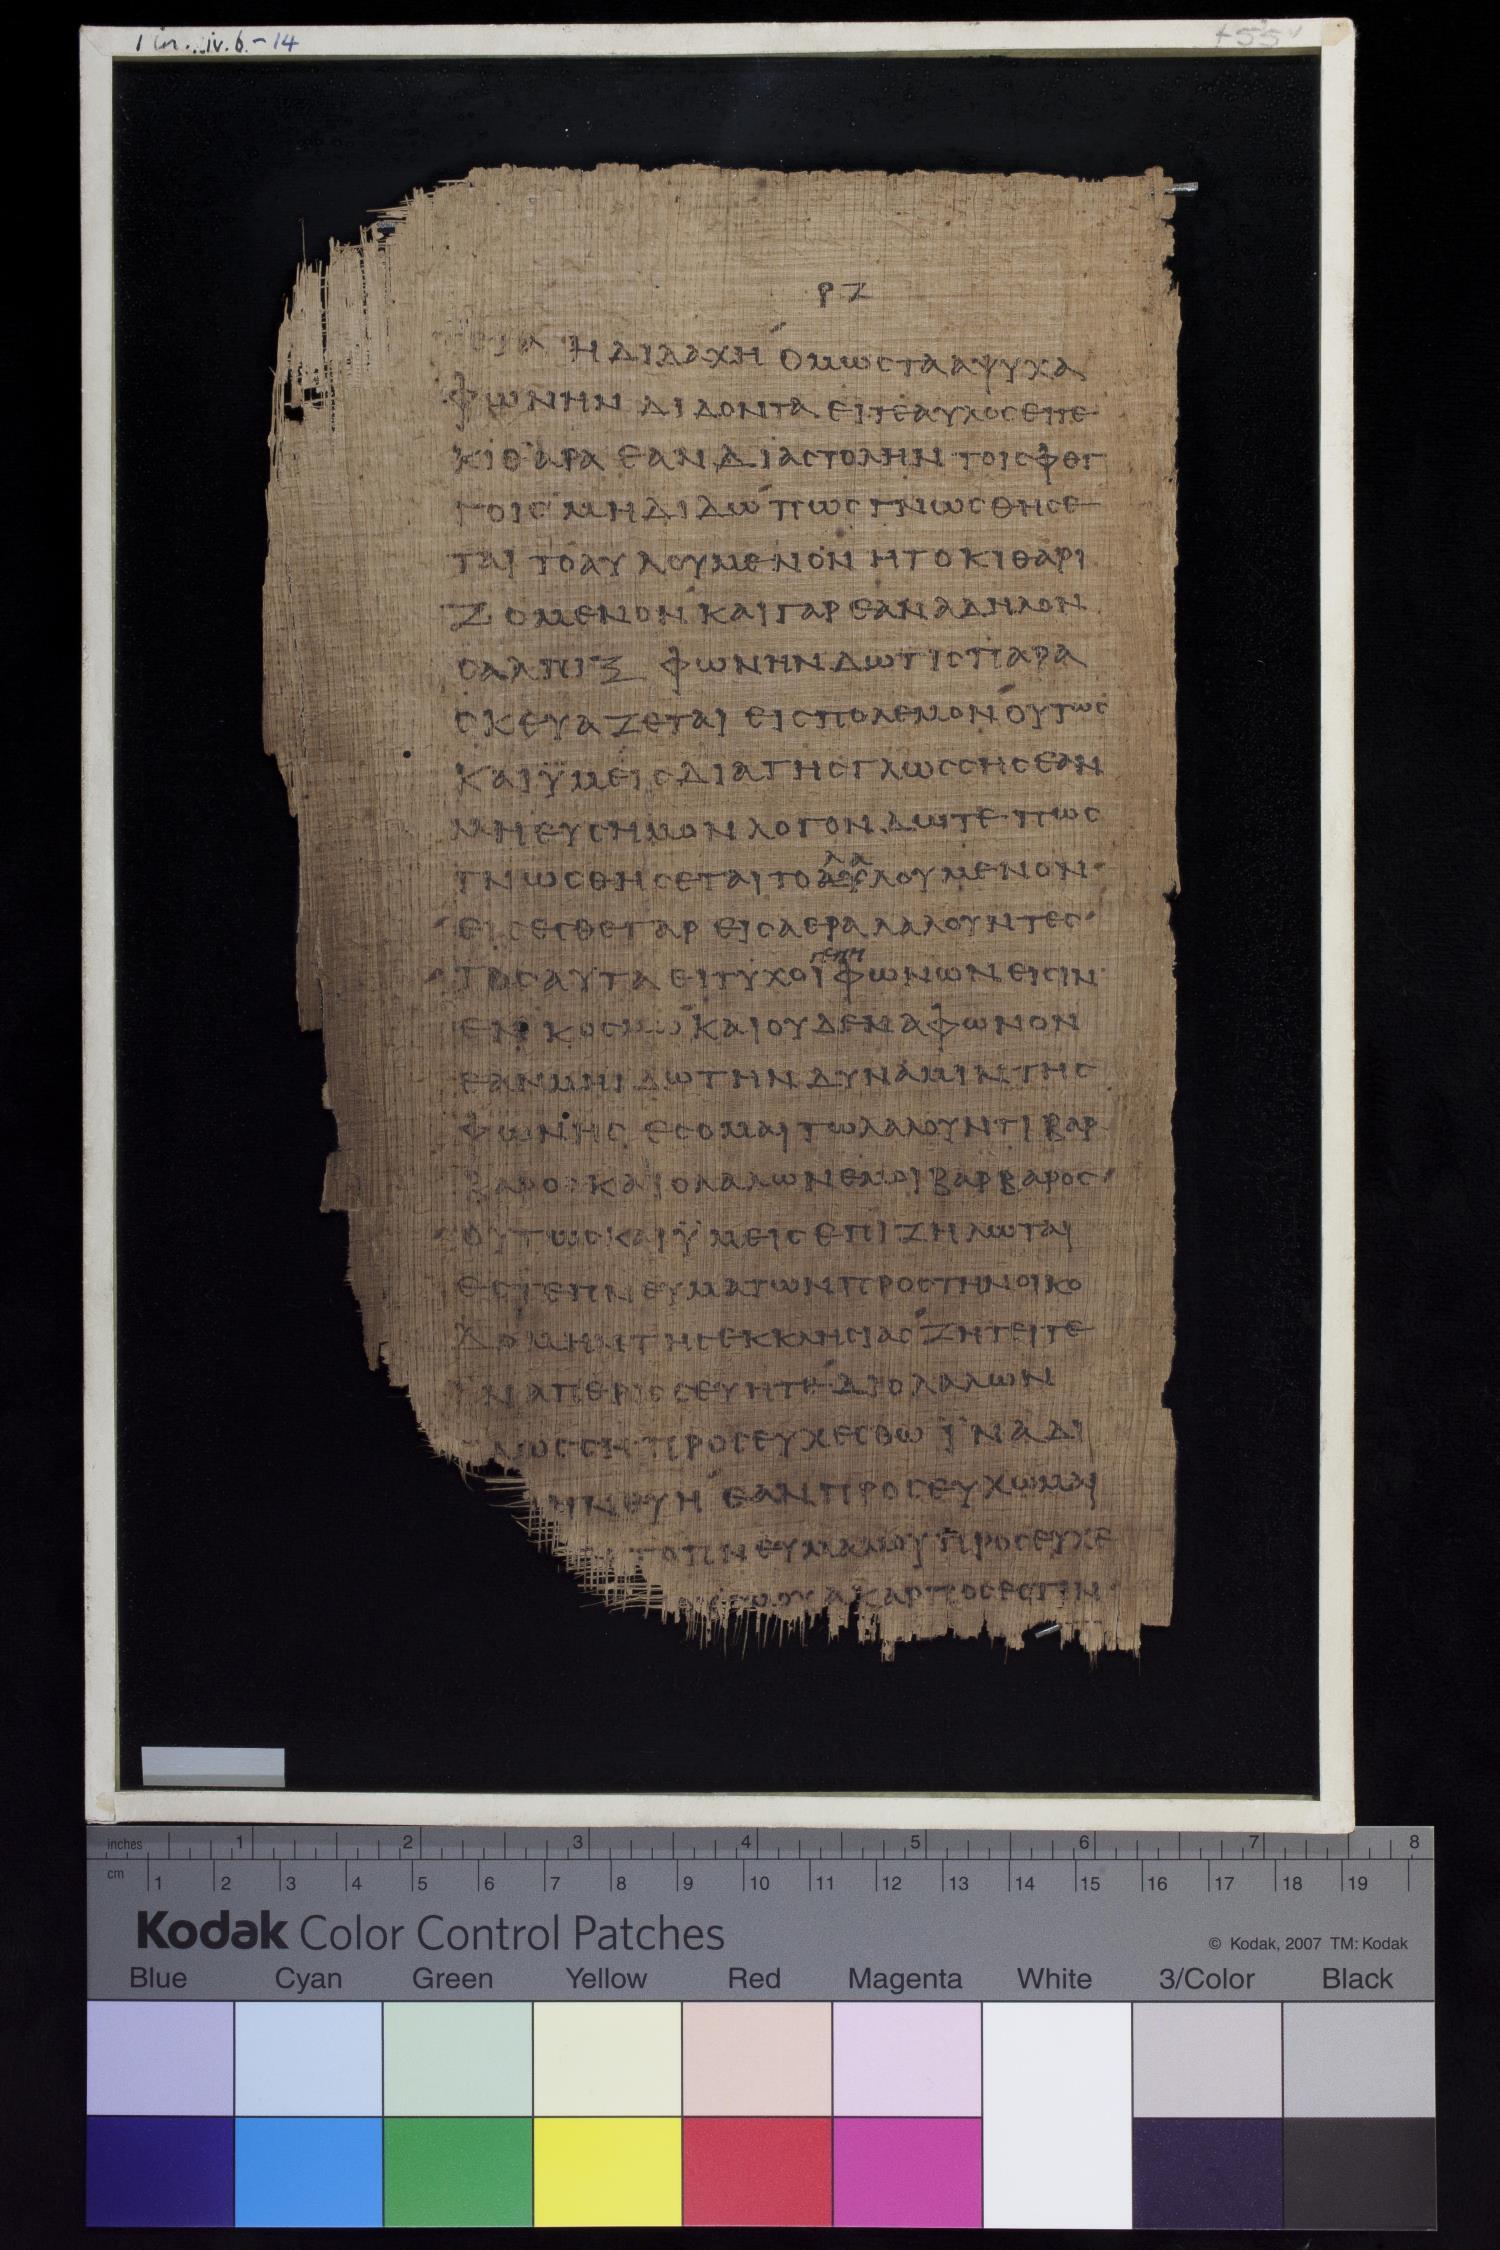 1 Cor. xiv. 6 - 14
f 55 v
ΡΖ
ΤΕΙΑ Η ΔΙΔΑΧΗ ΟΜΩΣ ΤΑ ΑΨΥΧΑ
ΦΩΝΗΝ ΔΙΔΟΝΤΑ ΕΙΤΕ ΑΥΛΟΣ ΕΙΤΕ
ΚΙΘΑΡΑ ΕΑΝ ΔΙΑΣΤΟΛΗΝ ΤΟΙΣ ΦΘΓ
ΓΟΙΣ ΜΗ ΔΙΔΩ ΠΩΣ ΓΝΩΣΘΗΣΕ
ΤΑΙ ΤΟ ΑΥΛΟΥΜΕΝΟΝ Η ΤΟ ΚΙΘΑΡΙ
ΖΟΜΕΝΟΝ ΚΑΙ ΓΑΡ ΕΑΝ ΑΔΗΛΟΝ
ΣΑΛΠΙΞ ΦΩΝΗΝ ΔΩ ΤΙΣ ΠΑΡΑ
ΣΚΕΥΑΖΕΤΑΙ ΕΙΣ ΠΟΛΕΜΟΝ ΟΥΤΩΣ
ΚΑΙ ΫΜΕΙΣ ΔΙΑ ΤΗΣ ΓΛΩΣΣΗΣ ΕΑΝ
ΜΗ ΕΥΣΗΜΟΝ ΛΟΓΟΝ ΔΩΤΕ ΠΩΣ
ΛΑ
ΓΝΩΣΘΗΣΕΤΑΙ ΤΟ ΑΥΛΟΥΜΕΝΟΝ
ΕΙΣΕΣΘΕ ΓΑΡ ΕΙΣ ΑΕΡΑ ΛΑΛΟΥΝΤΕΣ
ΓΕΝΗ
ΤΟΣΑΥΤΑ ΕΙ ΤΥΧΟΙ ΦΩΝΩΝ ΕΙΣΙΝ
ΕΝ ΚΟΣΜΩ ΚΑΙ ΟΥΔΕΝ ΑΦΩΝΟΝ
ΕΑΝ ΜΗ ΙΔΩ ΤΗΝ ΔΥΝΑΜΙΝ ΤΗΣ
ΦΩΝΗΣ ΕΣΟΜΑΙ ΤΩ ΛΑΛΟΥΝΤΙ ΒΑΡ
ΒΑΡΟΣ ΚΑΙ Ο ΛΑΛΩΝ ΕΜΟΙ ΒΑΡΒΑΡΟΣ
ΟΥΤΩΣ ΚΑΙ ΫΜΕΙΣ ΕΠΙ ΖΗΛΩΤΑΙ
ΕΣΤΕ ΠΝΕΥΜΑΤΩΝ ΠΡΟΣ ΤΗΝ ΟΙΚΟ
ΔΟΜΗΝ ΤΗΣ ΕΚΚΛΗΣΙΑΣ ΖΗΤΕΙΤΕ
ΙΝΑ ΠΕΡΙΣΣΕΥΗΤΕ ΔΙΟ Ο ΛΑΛΩΝ
ΛΩΣΣΗ ΠΡΟΣΕΥΧΕΣΘΩ ΪΝΑ ΔΙ
ΗΝΕΥΗ ΕΑΝ ΠΡΟΣΕΥΧΩΜΑΙ
ΤΟ ΠΝΕΥΜΑ ΜΟΥ ΠΡΟΣΕΥΧΕ
ΜΟΥ ΑΚΑΡΠΟΣ ΕΣΤΙΝ
inches 1 2 3 4 5 6 7 8
cm 1 2 3 4 5 6 7 8 9 10 11 12 13 14 15 16 17 18 19
Kodak Color Control Patches
© Kodak, 2007 TM: Kodak
Blue Cyan Green Yellow Red Magenta White 3/Color Black